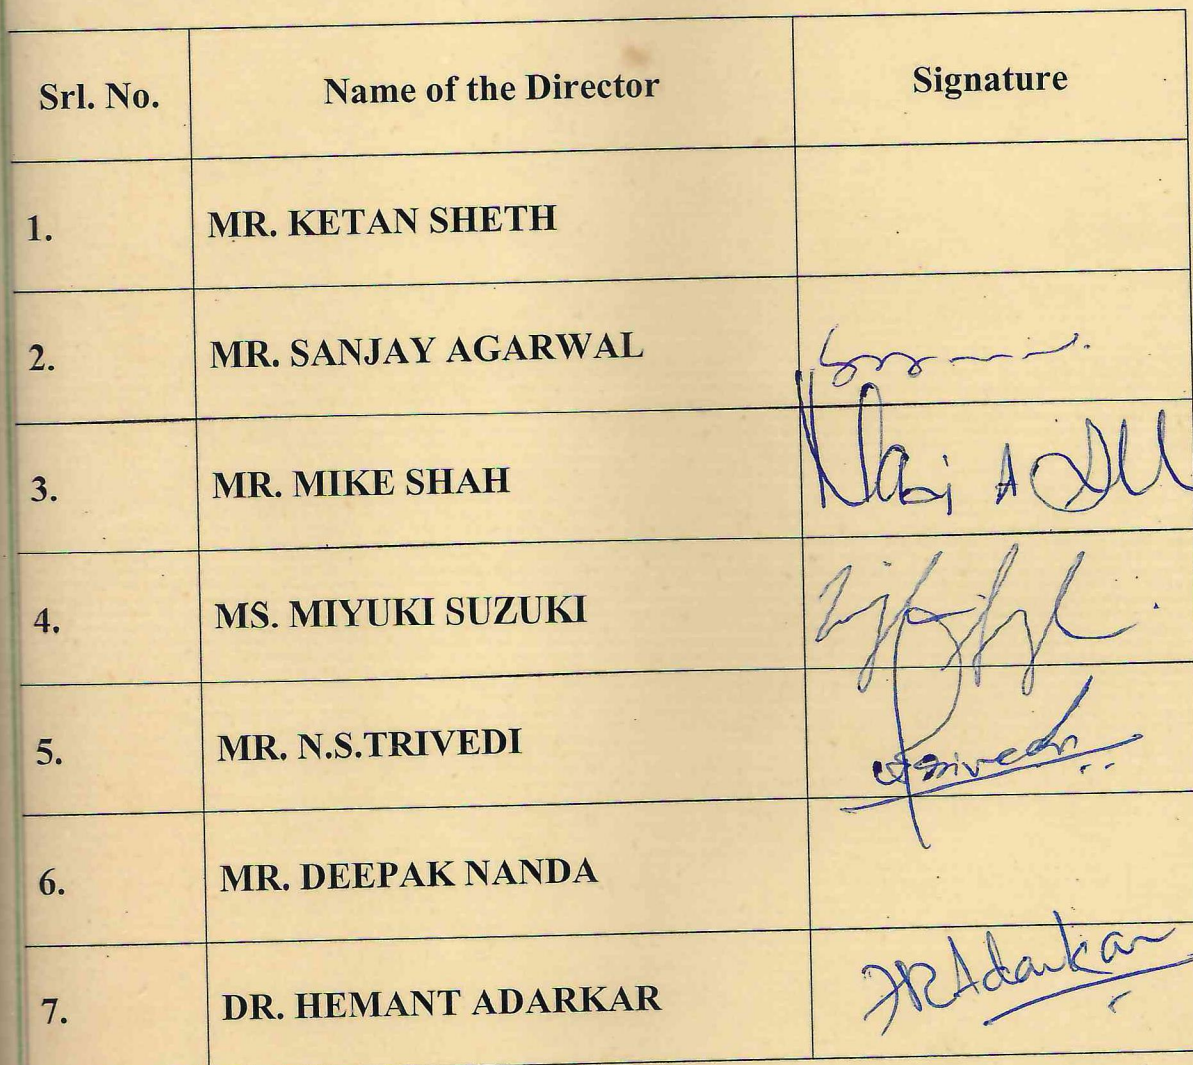 Srl. No. Name of the Director Signature
1. MR. KETAN SHETH
2. MR. SANJAY AGARWAL
3. MR. MIKE SHAH
4. MS. MIYUKI SUZUKI
5. MR. N.S.TRIVEDI Trivedi
6. MR. DEEPAK NANDA
7. DR. HEMANT ADARKAR HRAdarkar